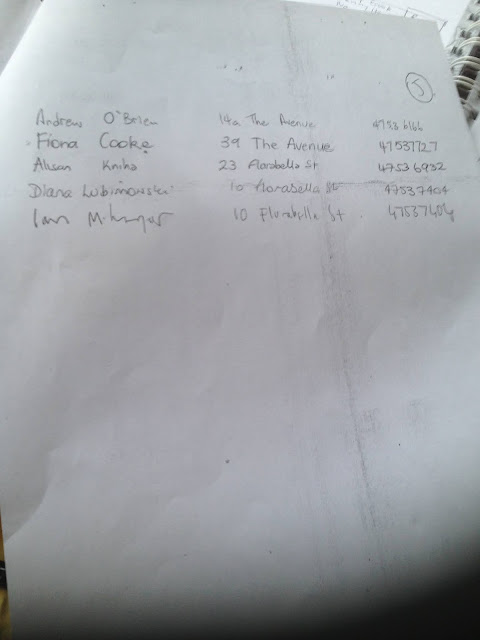 5
Andrew O'Brien 14a The Avenue 4753 6166
Fiona Cooke 39 The Avenue 47531727
Alison Kniha 23 Florabella St 47536932
Diana Lubimowski 10 Florabella St 47537404
Ian 10 Florabella St 47537404